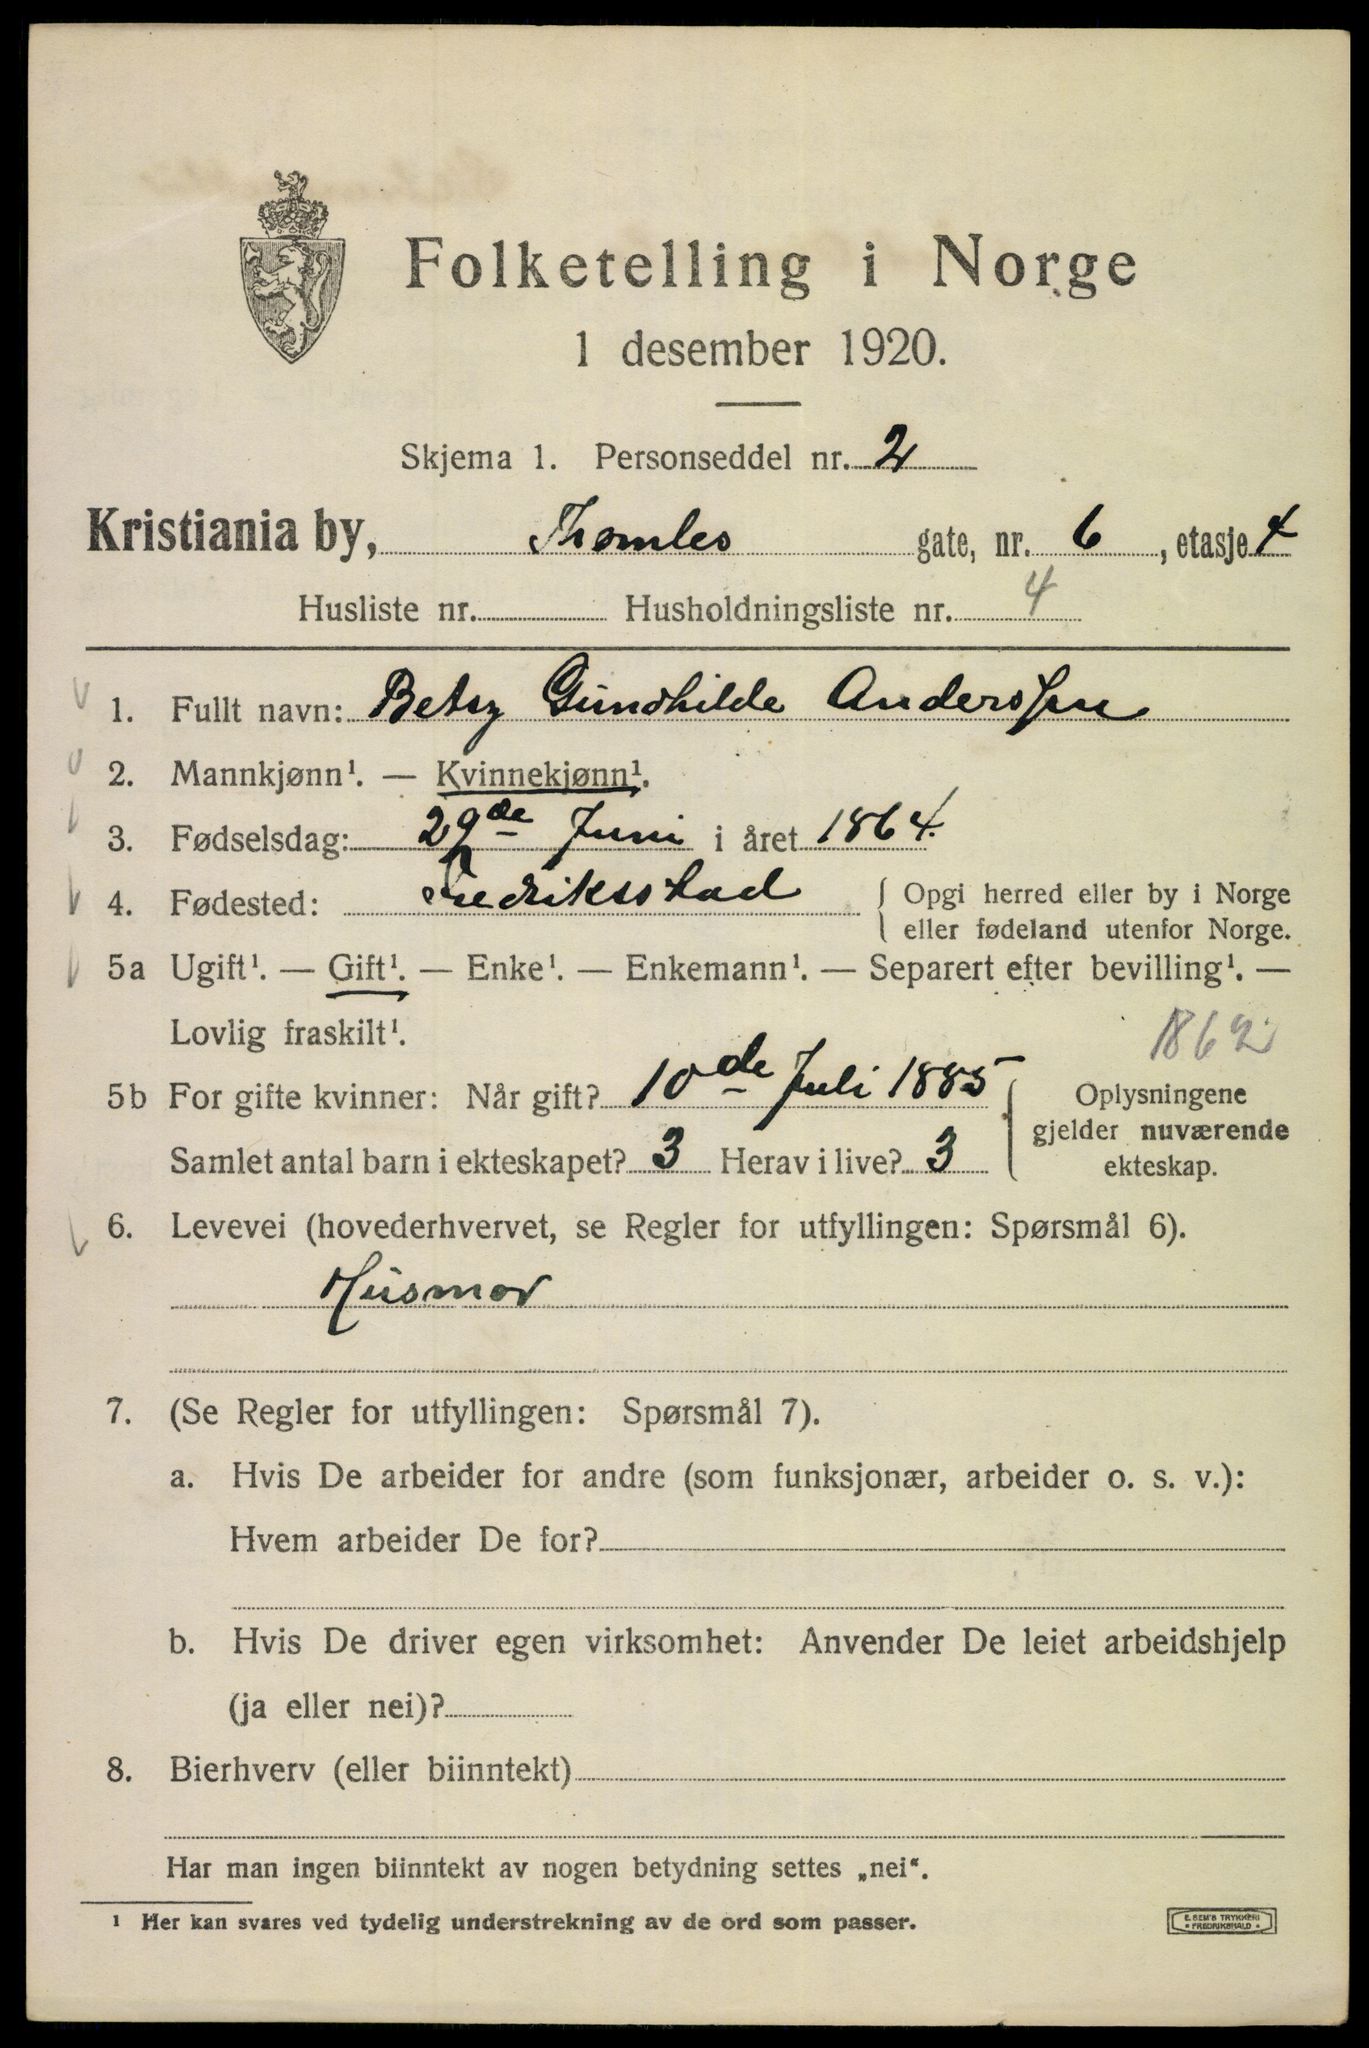 Folketelling i Norge
1 desember 1920.
Skjema 1. Personseddel nr. 2
Kristiania by, Thomles gate, nr. 6, etasje 4
Husliste nr. Husholdningsliste nr. 4
1. Fullt navn: Betsy Gundhilde Anderssen
2. Mannkjønn¹. — Kvinnekjønn¹.
3. Fødselsdag: 29de Juni i året 1864.
4. Fødested: Fredriksstad { Opgi herred eller by i Norge
eller fødeland utenfor Norge.
5a Ugift¹. — Gift¹. — Enke¹. — Enkemann¹. — Separert efter bevilling¹. —
Lovlig fraskilt¹.
1862
5b For gifte kvinner: Når gift? 10de Juli 1885 { Oplysningene
gjelder nuværende
Samlet antal barn i ekteskapet? 3 Herav i live? 3 ekteskap.
6. Levevei (hovederhvervet, se Regler for utfyllingen: Spørsmål 6).
Husmor
7. (Se Regler for utfyllingen: Spørsmål 7).
a. Hvis De arbeider for andre (som funksjonær, arbeider o. s. v.):
Hvem arbeider De for?
b. Hvis De driver egen virksomhet: Anvender De leiet arbeidshjelp
(ja eller nei)?
8. Bierhverv (eller biinntekt)
Har man ingen biinntekt av nogen betydning settes „nei“.
¹ Her kan svares ved tydelig understrekning av de ord som passer.
E. SEM'S TRYKKERI
* FREDRIKSHALD *